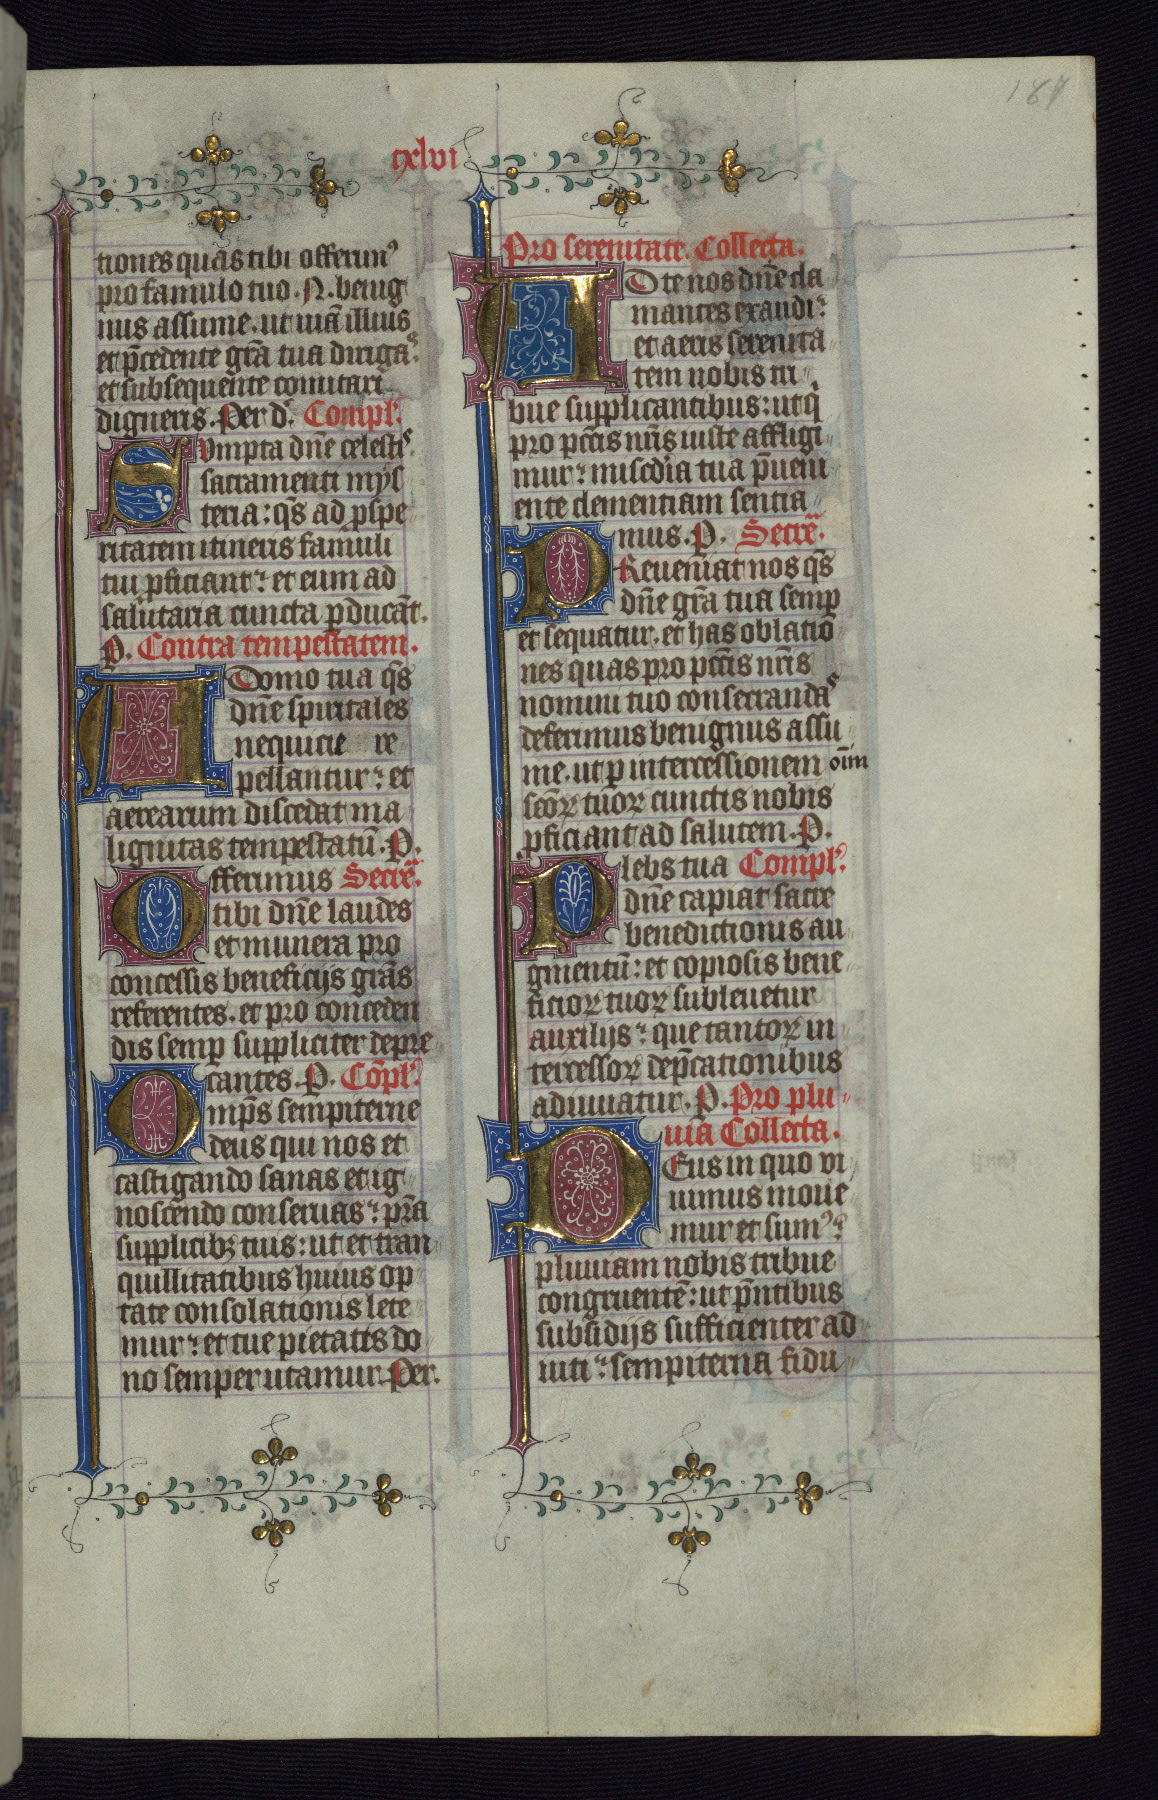 187
cxlvi
tiones quas tibi offerimꝰ
pro famulo tuo. N. benig
nus assume. ut uiā illius
et p̄cedente grā tua dirigas:
et subsequente comitari
digneris. Per d. Compl'.
Sumpta dn̄e celestis
sacramenti mys
teria: qs̄ ad ꝓspe
ritatem itineris famuli
tui ꝓficiant: et eum ad
salutaria cuncta ꝑducāt.
P. Contra tempestatem.
A Domo tua qs̄
dn̄e spiritales
nequicie re
pellantur: et
aerearum discedat ma
lignitas tempestatū. P.
Offerimus Secre͞.
tibi dn̄e laudes
et munera pro
concessis beneficijs grās
referentes. et pro conceden
dis semꝑ suppliciter depre
cantes. P. Cōpl'.
Omp̄s sempiterne
deus qui nos et
castigando sanas et ig
noscendo conseruas: pr̄a
supplicibꝫ tuis: ut et tran
quillitatibus huius op
tate consolationis lete
mur: et tue pietatis do
no semper utamur. Per.
Pro serenitate. Collecta.
AD te nos dn̄e cla
mantes exaudi:
et aeris serenita
tem nobis tri
bue supplicantibus: ut q̇
pro pctīs nr̄is iuste affligi
mur: misc̄dia tua p̄ueni
ente clementiam sentia
mus. P. Secre͞.
PReueniat nos qs̄
dn̄e grā tua semꝑ
et sequatur. et has oblatio
nes quas pro pctīs nr̄is
nomini tuo consecrandas
deferimus benignus assu
me. ut ꝑ intercessionem oīm
scōꝝ tuoꝝ cunctis nobis
ꝓficiant ad salutem. P.
Plebs tua Compl'.
dn̄e capiat sacre
benedictionis au
gmentū: et copiosis bene
ficioꝝ tuoꝝ subleuetur
auxilijs: que tantoꝝ in
tercessoꝝ dep̄cationibus
adiuuatur. P. Pro plu
uia Collecta.
DEus in quo vi
uimus moue
mur et sumꝰ:
pluuiam nobis tribue
congruentē: ut p̄ntibus
subsidijs sufficienter ad
iuti: sempiterna fidu